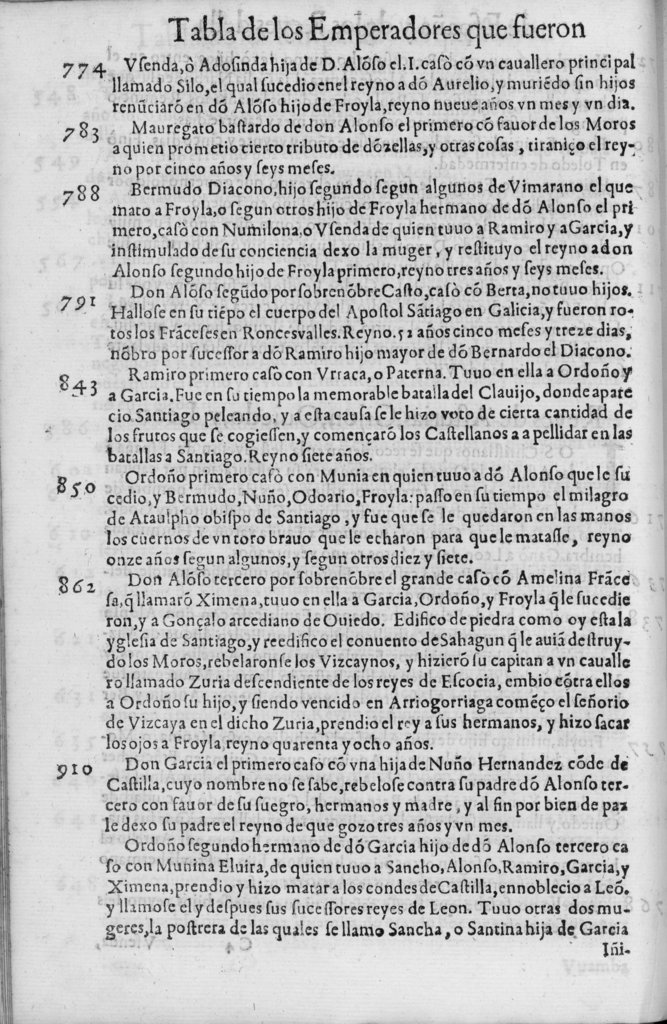 Tabla de los Emperadores que fueron
774 Vsenda, ò Adosinda hija de D. Alõso el. I. casò cõ vn cauallero principal
llamado Silo, el qual sucedio en el reyno a dõ Aurelio, y muriẽdo sin hijos
renũciarõ en dõ Alõso hijo de Froyla, reyno nueue años vn mes y vn dia.
783 Mauregato bastardo de don Alonso el primero cõ fauor de los Moros
a quien prometio cierto tributo de dõzellas, y otras cosas, tiraniço el rey-
no por cinco años y seys meses.
788 Bermudo Diacono, hijo segundo segun algunos de Vimarano el que
mato a Froyla, o segun otros hijo de Froyla hermano de dõ Alonso el pri
mero, casò con Numilona, o Vsenda de quien tuuo a Ramiro y a Garcia, y
instimulado de su conciencia dexo la muger, y restituyo el reyno a don
Alonso segundo hijo de Froyla primero, reyno tres años y seys meses.
791 Don Alõso segũdo por sobrenõbre Casto, casò cõ Berta, no tuuo hijos.
Hallose en su tiẽpo el cuerpo del Apostol Sãtiago en Galicia, y fueron ro-
tos los Frãceses en Roncesvalles. Reyno. 52 años cinco meses y treze dias,
nõbro por sucessor a dõ Ramiro hijo mayor de dõ Bernardo el Diacono.
843 Ramiro primero casò con Vrraca, o Paterna. Tuuo en ella a Ordoño y
a Garcia. Fue en su tiempo la memorable batalla del Clauijo, donde apare
cio Santiago peleando, y a esta causa se le hizo voto de cierta cantidad de
los frutos que se cogiessen, y començarõ los Castellanos a apellidar en las
batallas a Santiago. Reyno siete años.
850 Ordoño primero casò con Munia en quien tuuo a dõ Alonso que le su
cedio, y Bermudo, Nuño, Odoario, Froyla: passo en su tiempo el milagro
de Ataulpho obispo de Santiago, y fue que se le quedaron en las manos
los cuernos de vn toro brauo que le echaron para que le matasse, reyno
onze años segun algunos, y segun otros diez y siete.
862 Don Alõso tercero por sobrenõbre el grande casò cõ Amelina Frãce
sa, q̃ llamarõ Ximena, tuuo en ella a Garcia, Ordoño, y Froyla q̃ le sucedie
ron, y a Gonçalo arcediano de Ouiedo. Edifico de piedra como oy esta la
yglesia de Santiago, y reedifico el conuento de Sahagun q̃ le auiã destruy-
do los Moros, rebelaronse los Vizcaynos, y hizierõ su capitan a vn caualle
ro llamado Zuria descendiente de los reyes de Escocia, embio cõtra ellos
a Ordoño su hijo, y siendo vencido en Arriogorriaga comẽço el señorio
de Vizcaya en el dicho Zuria, prendio el rey a sus hermanos, y hizo sacar
los ojos a Froyla, reyno quarenta y ocho años.
910 Don Garcia el primero caso cõ vna hija de Nuño Hernandez cõde de
Castilla, cuyo nombre no se sabe, rebelose contra su padre dõ Alonso ter-
cero con fauor de su suegro, hermanos y madre, y al fin por bien de paz
le dexo su padre el reyno de que gozo tres años y vn mes.
Ordoño segundo hermano de dõ Garcia hijo de dõ Alonso tercero ca
so con Munina Eluira, de quien tuuo a Sancho, Alonso, Ramiro, Garcia, y
Ximena, prendio y hizo matar a los condes de Castilla, ennoblecio a Leõ.
y llamose el y despues sus sucessores reyes de Leon. Tuuo otras dos mu-
geres, la postrera de las quales se llamo Sancha, o Santina hija de Garcia
Iñi-